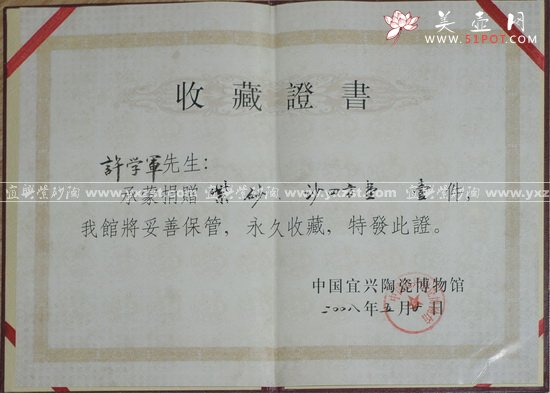 美壶网
www.51POT.com
收藏證書
許学軍先生:
承蒙捐赠 紫砂 四方壶 壹件,
我館將妥善保管,永久收藏,特發此證。
宜興紫砂陶 www.yxzst.com 宜興紫砂陶 www.yxzst.com 宜興紫砂陶 www.yxz
中国宜兴陶瓷博物馆
二00八年五月 日